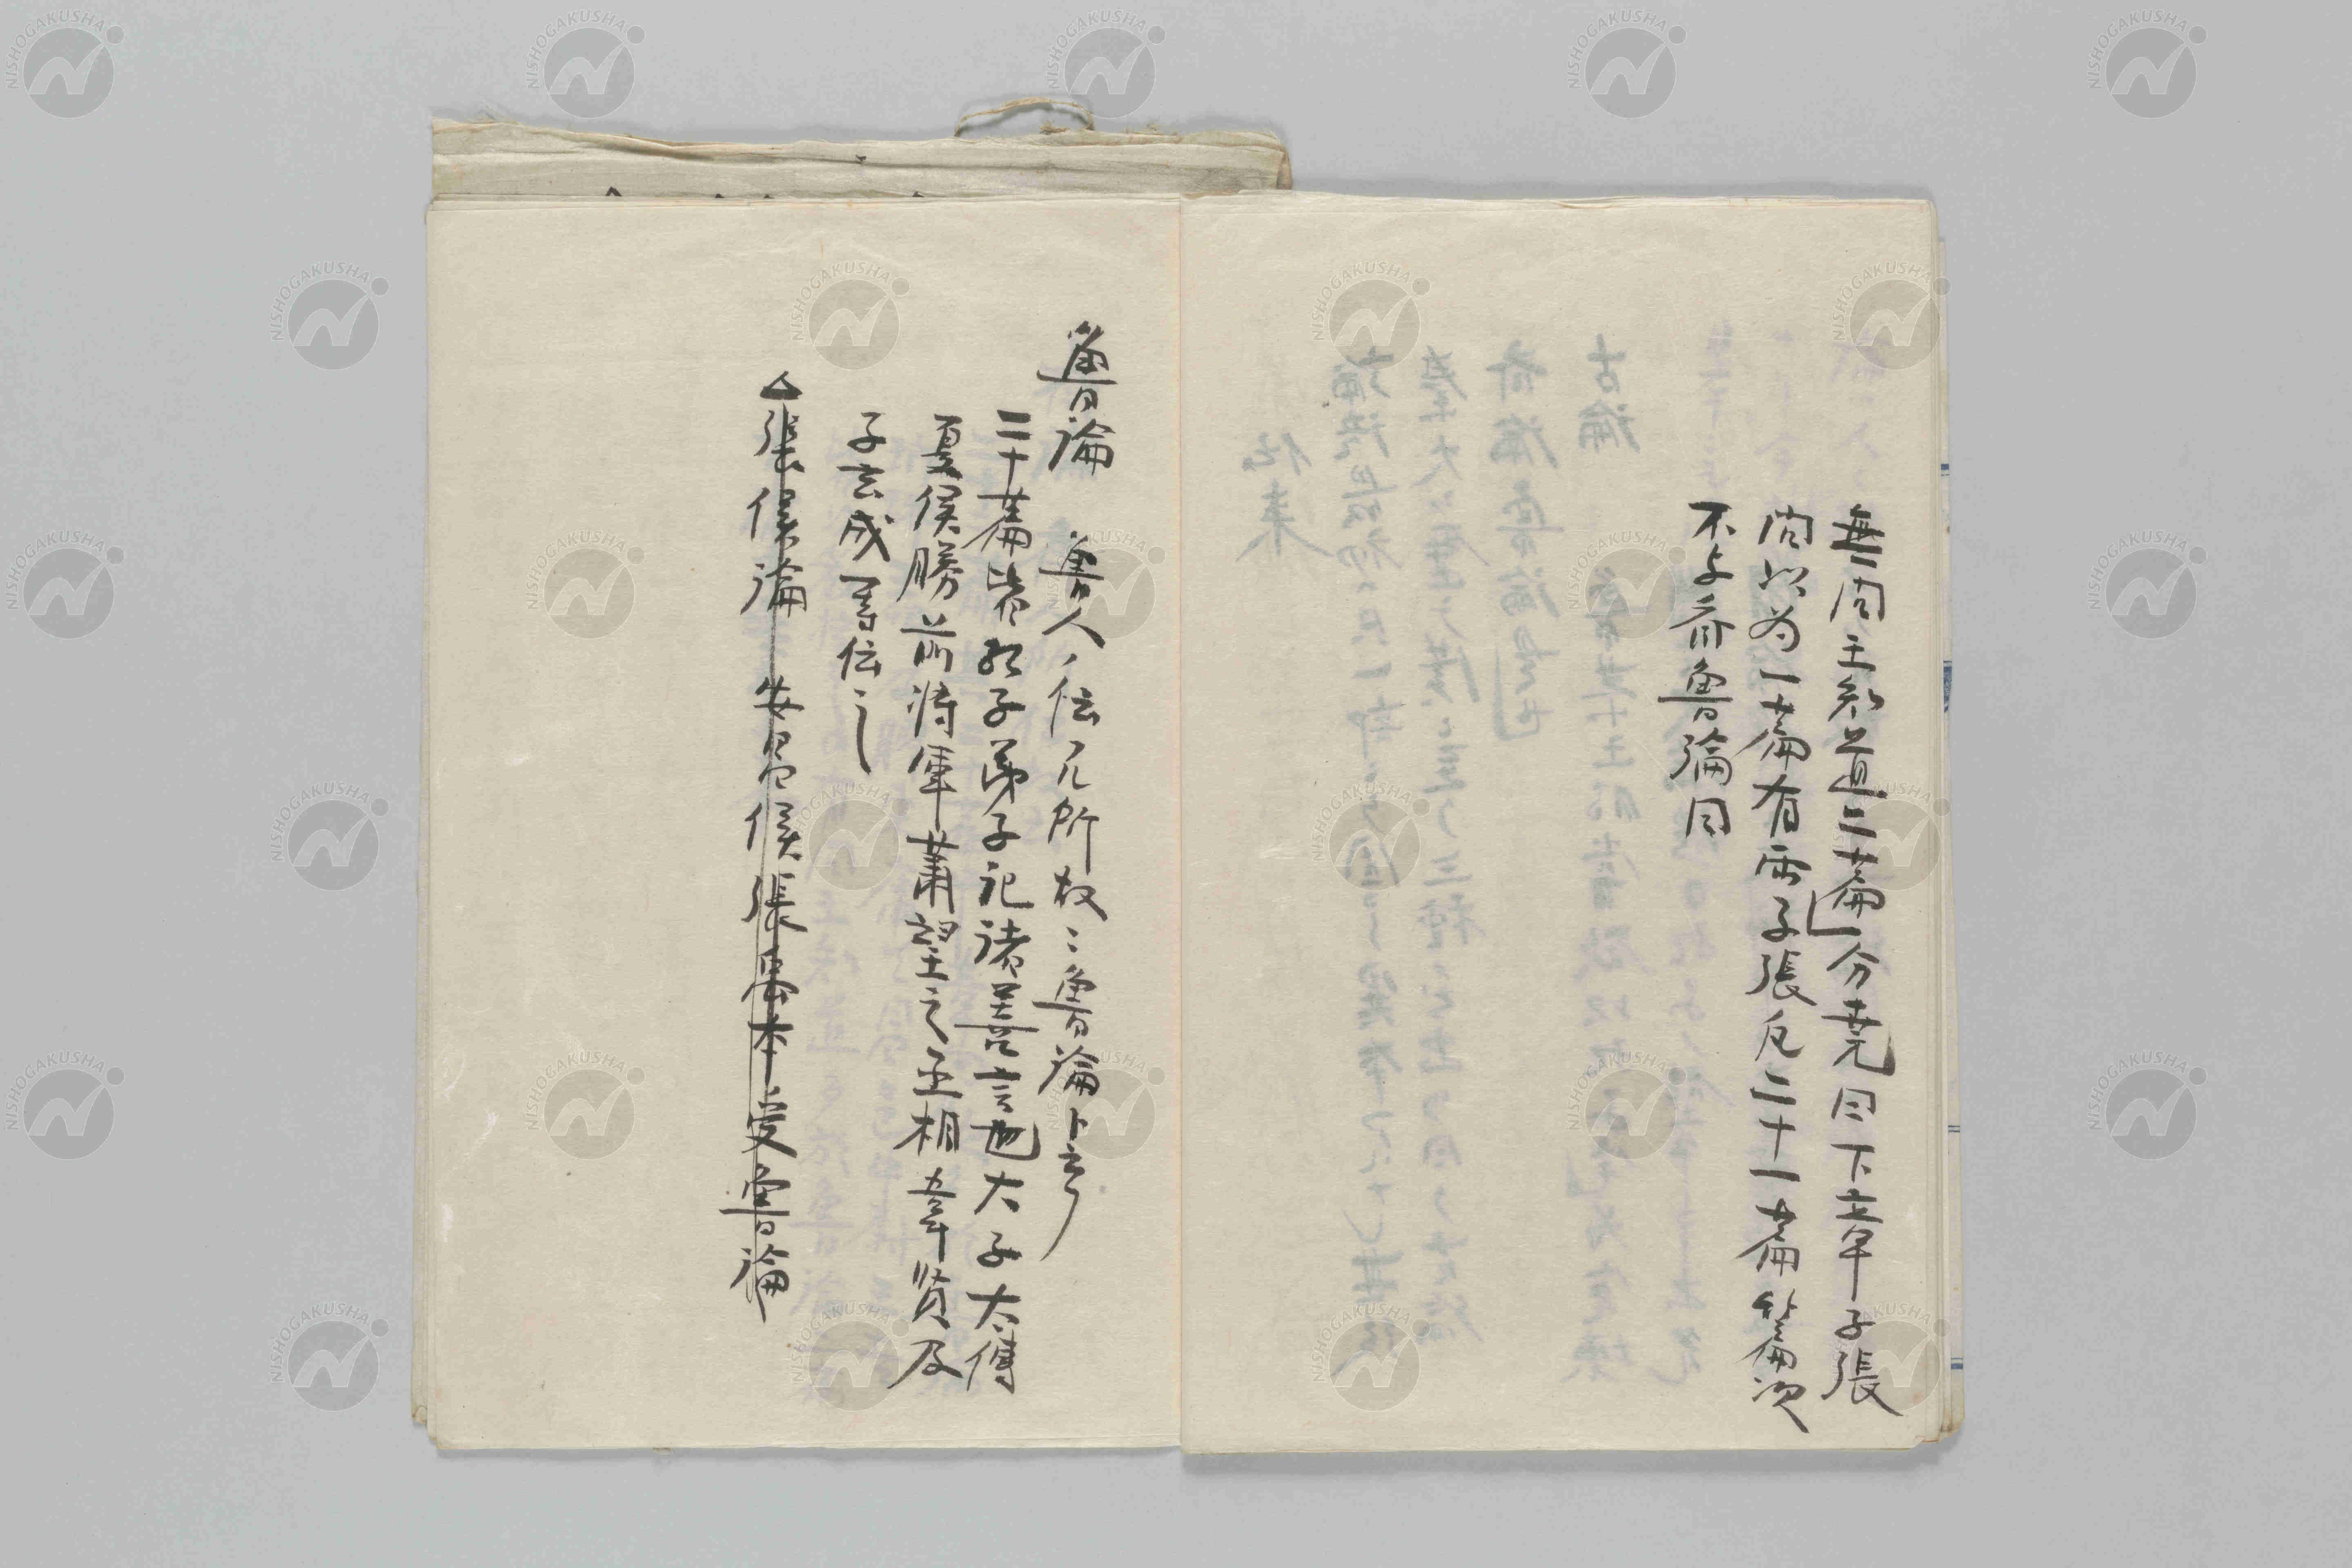 無問王知道二篇分堯曰下章子張
問以為一篇有両子張凡二十一篇篇次
不与斉魯論同
魯論 魯人ノ伝ル所故ニ魯論ト云フ
二十篇皆孔子弟子記諸善言也大子太傅
夏侯勝前将軍蕭望之丞相韋賢及
子玄成等伝之
張侯論 安昌侯張禹本受魯論
NISHOGAKUSHA